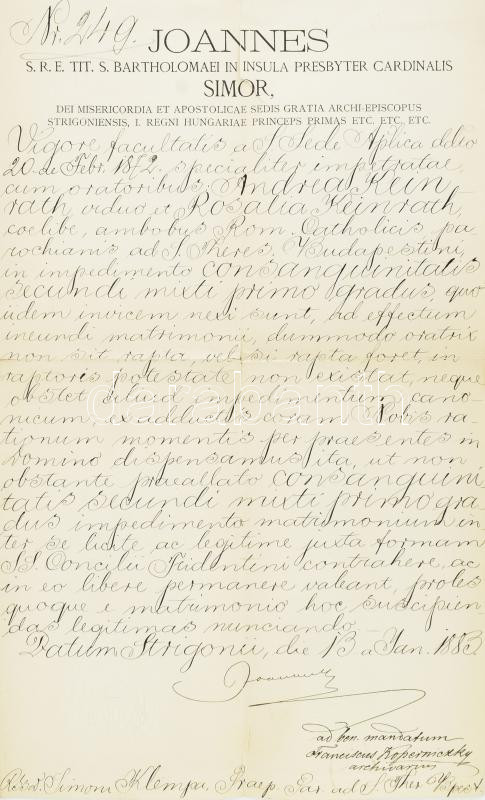 Nr. 249.
JOANNES
S. R. E. TIT. S. BARTHOLOMAEI IN INSULA PRESBYTER CARDINALIS
SIMOR,
DEI MISERICORDIA ET APOSTOLICAE SEDIS GRATIA ARCHI-EPISCOPUS
STRIGONIENSIS, I. REGNI HUNGARIAE PRINCEPS PRIMAS ETC. ETC. ETC.
Vigore facultatis a S. Sede Aplica ddto
20. de Febr. 1872. specialiter impetratae,
cum oratoribus: Andrea Kein
rath, viduo et Rosalia Keinrath,
coelibe, ambobus Rom. Catholicis pa
rochianis ad S. Theres. Budapestini,
in impedimento consanquinitatis
secundi mixti primo gradus, quo
iidem invicem nexi sunt, ad effectum
ineundi matrimonii, dummodo oratrix
non sit rapta, vel si rapta foret, in
raptoris potestate non existat, neque
obstet aliud impedimentum cano-
nicum, ex adductis coram Nobis ra-
tionum momentis per praesentes in
Domino dispensamus ita, ut non
obstante praeallato consanquini
tatis secundi mixti primo gra-
dus impedimento matrimonium in
ter se licite ac legitime juxta formam
SS. Concilii Tridentini contrahere, ac
in eo libere permanere valeant, proles
quoque e matrimonio hoc suscipien-
das legitimas nunciando.
Datum Strigonii, die 13 a Jan. 1883.
Joannes
ad ben. mandatum
Franciscus Koperniczky
archivarius
Simoni Klempa, Praep. Par. ad S. Ther. Bpest
darabanth